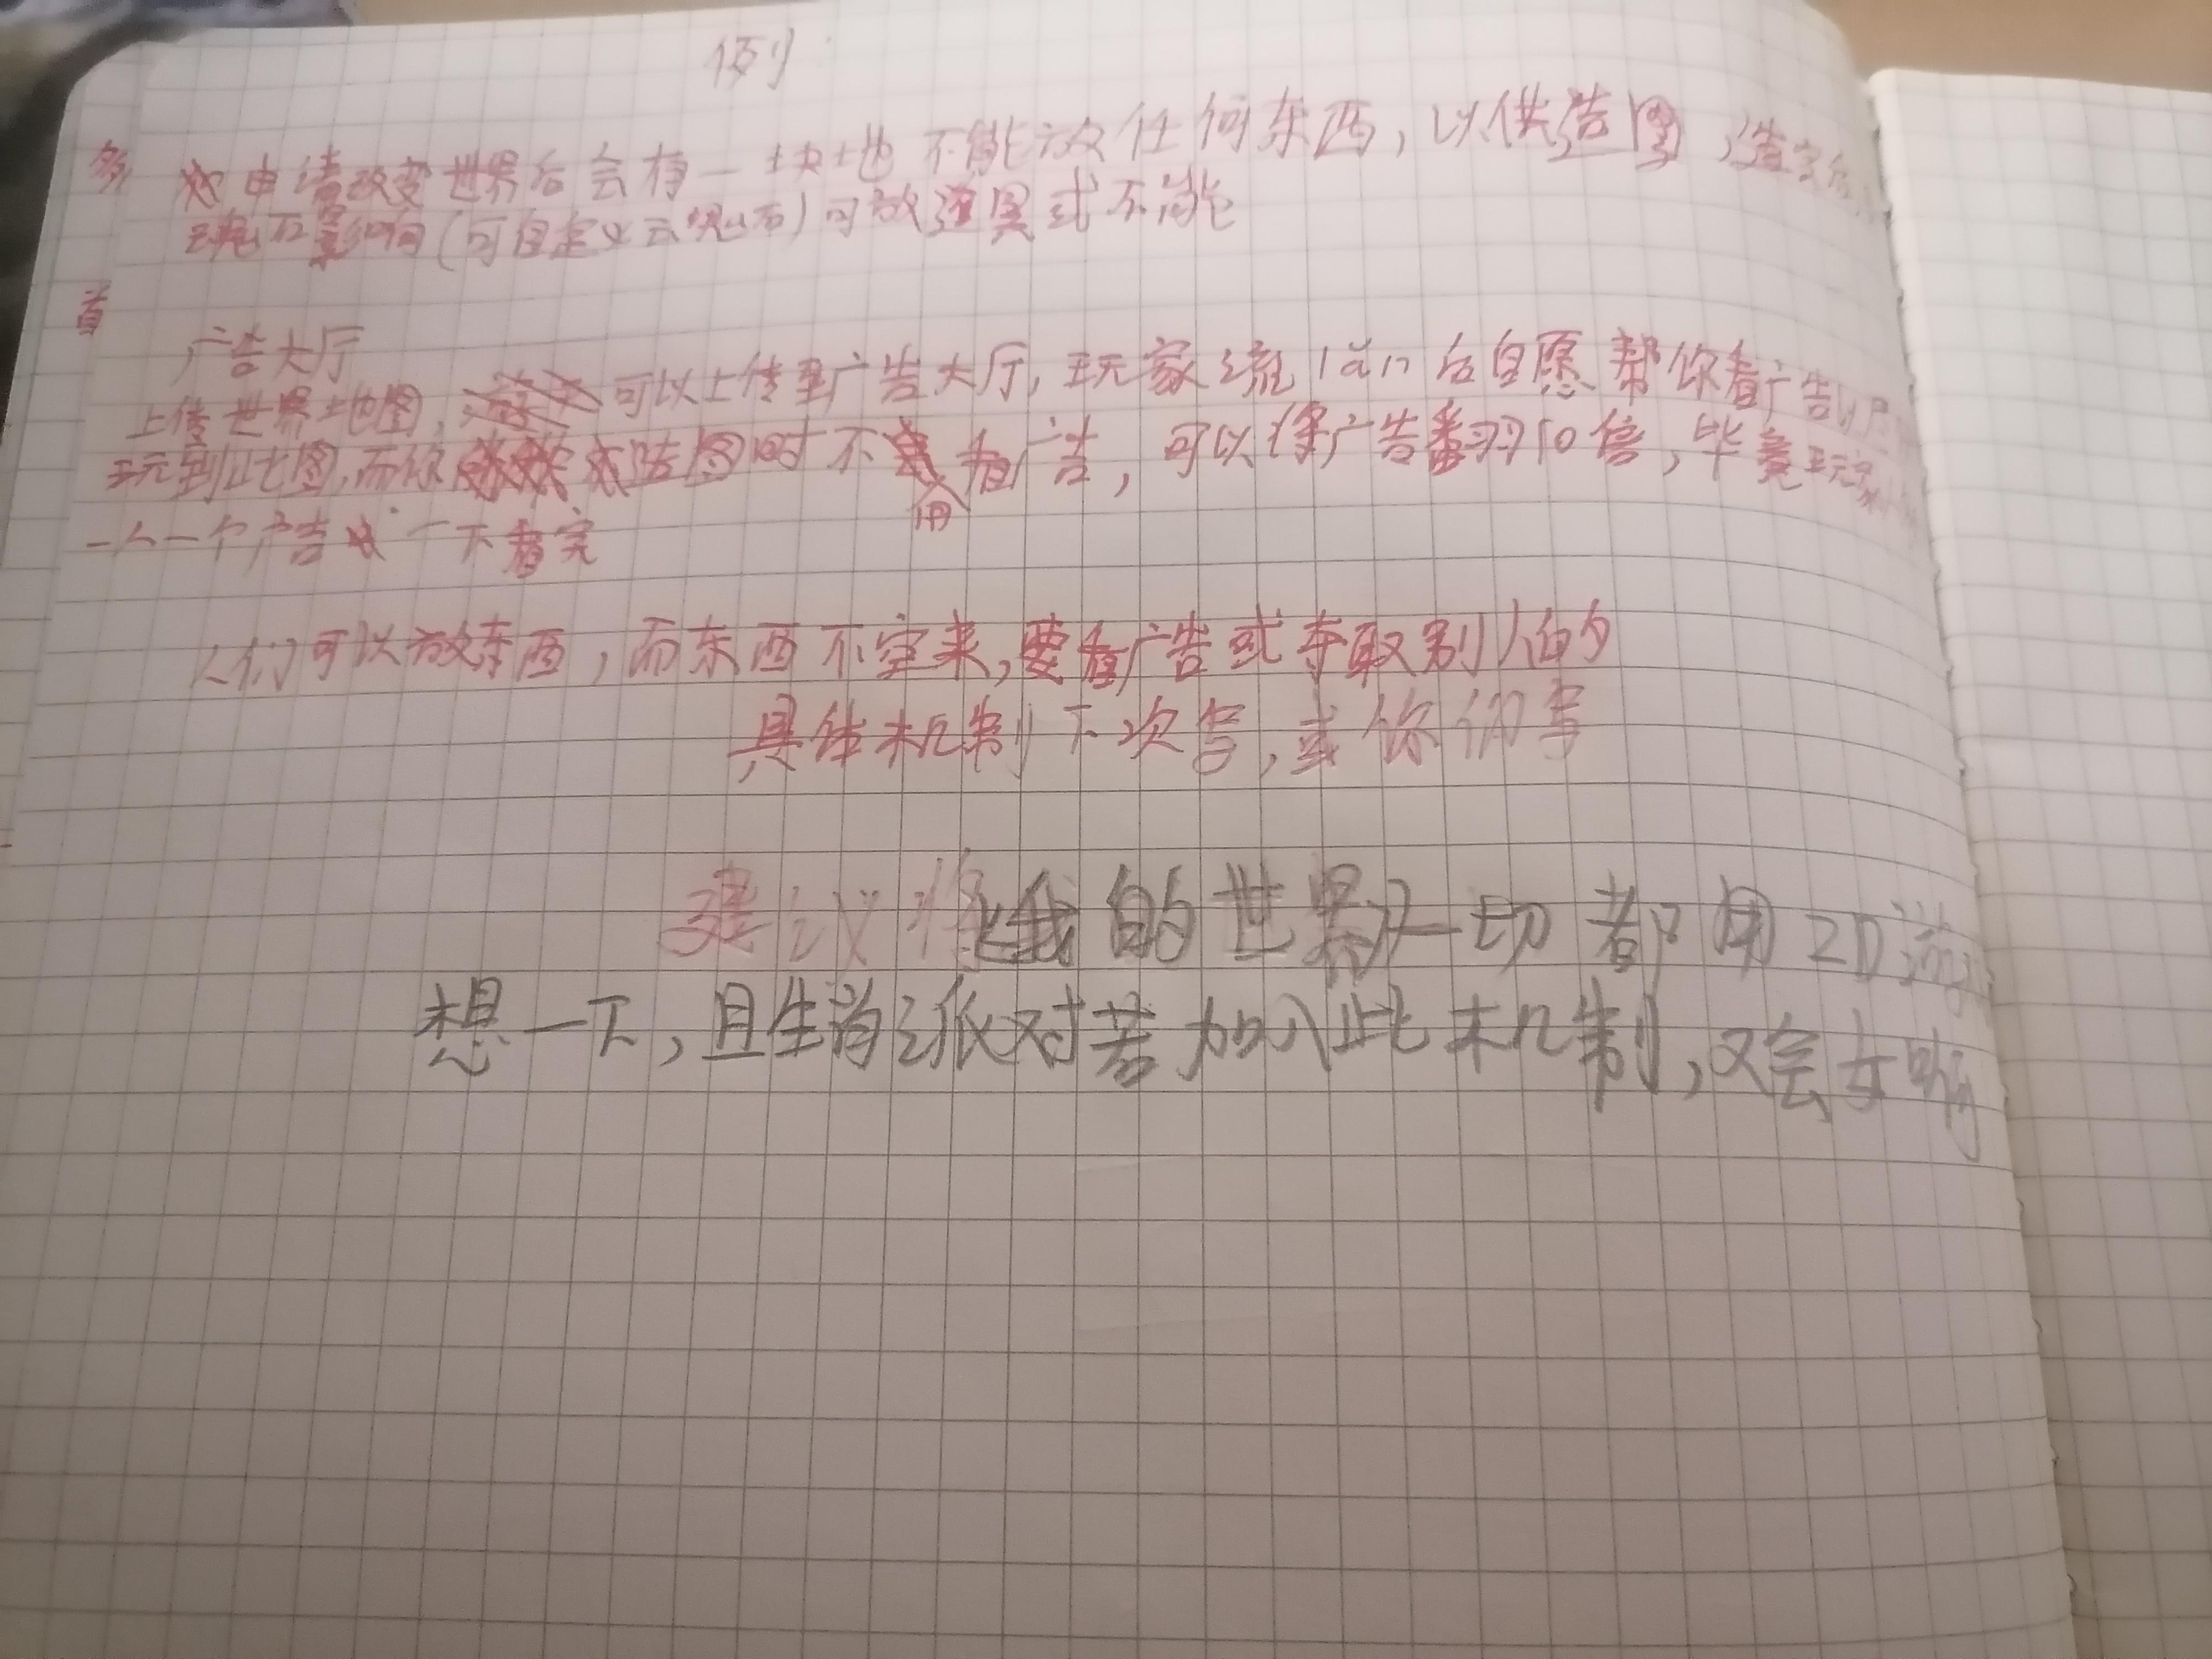 例
申请改变世界后会有一块地不能放任何东西,以供造图,造
不影响(可自定义云规而)可放道具或不能
广告大厅
上传世界地图,可以上传至广告大厅,玩家流lǎn后自愿帮你看广告,
玩到此图,而你造图时不用看广告,可以将广告番羽10倍,毕竟玩家
一人一个广告一下看完
人们可以放东西,而东西不空来,要看广告或夺取别人的
具体机制下次写,或你们写
建议将《我的世界》一切都用2D游
想一下,且生肖派对若加入此机制,又会